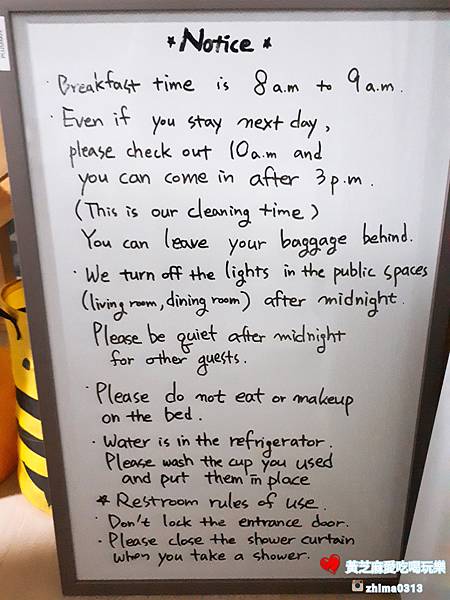 * Notice *
· Breakfast time is 8a.m to 9a.m.
· Even if you stay next day,
please check out 10a.m and
you can come in after 3p.m.
(This is our cleaning time)
You can leave your baggage behind.
· We turn off the lights in the public spaces
(living room, dining room) after midnight.
Please be quiet after midnight
for other guests.
· Please do not eat or makeup
on the bed.
· Water is in the refrigerator.
Please wash the cup you used
and put them in place
* Restroom rules of use.
· Don't lock the entrance door.
· Please close the shower curtain
when you take a shower.
黃芝麻愛吃喝玩樂
zhima0313